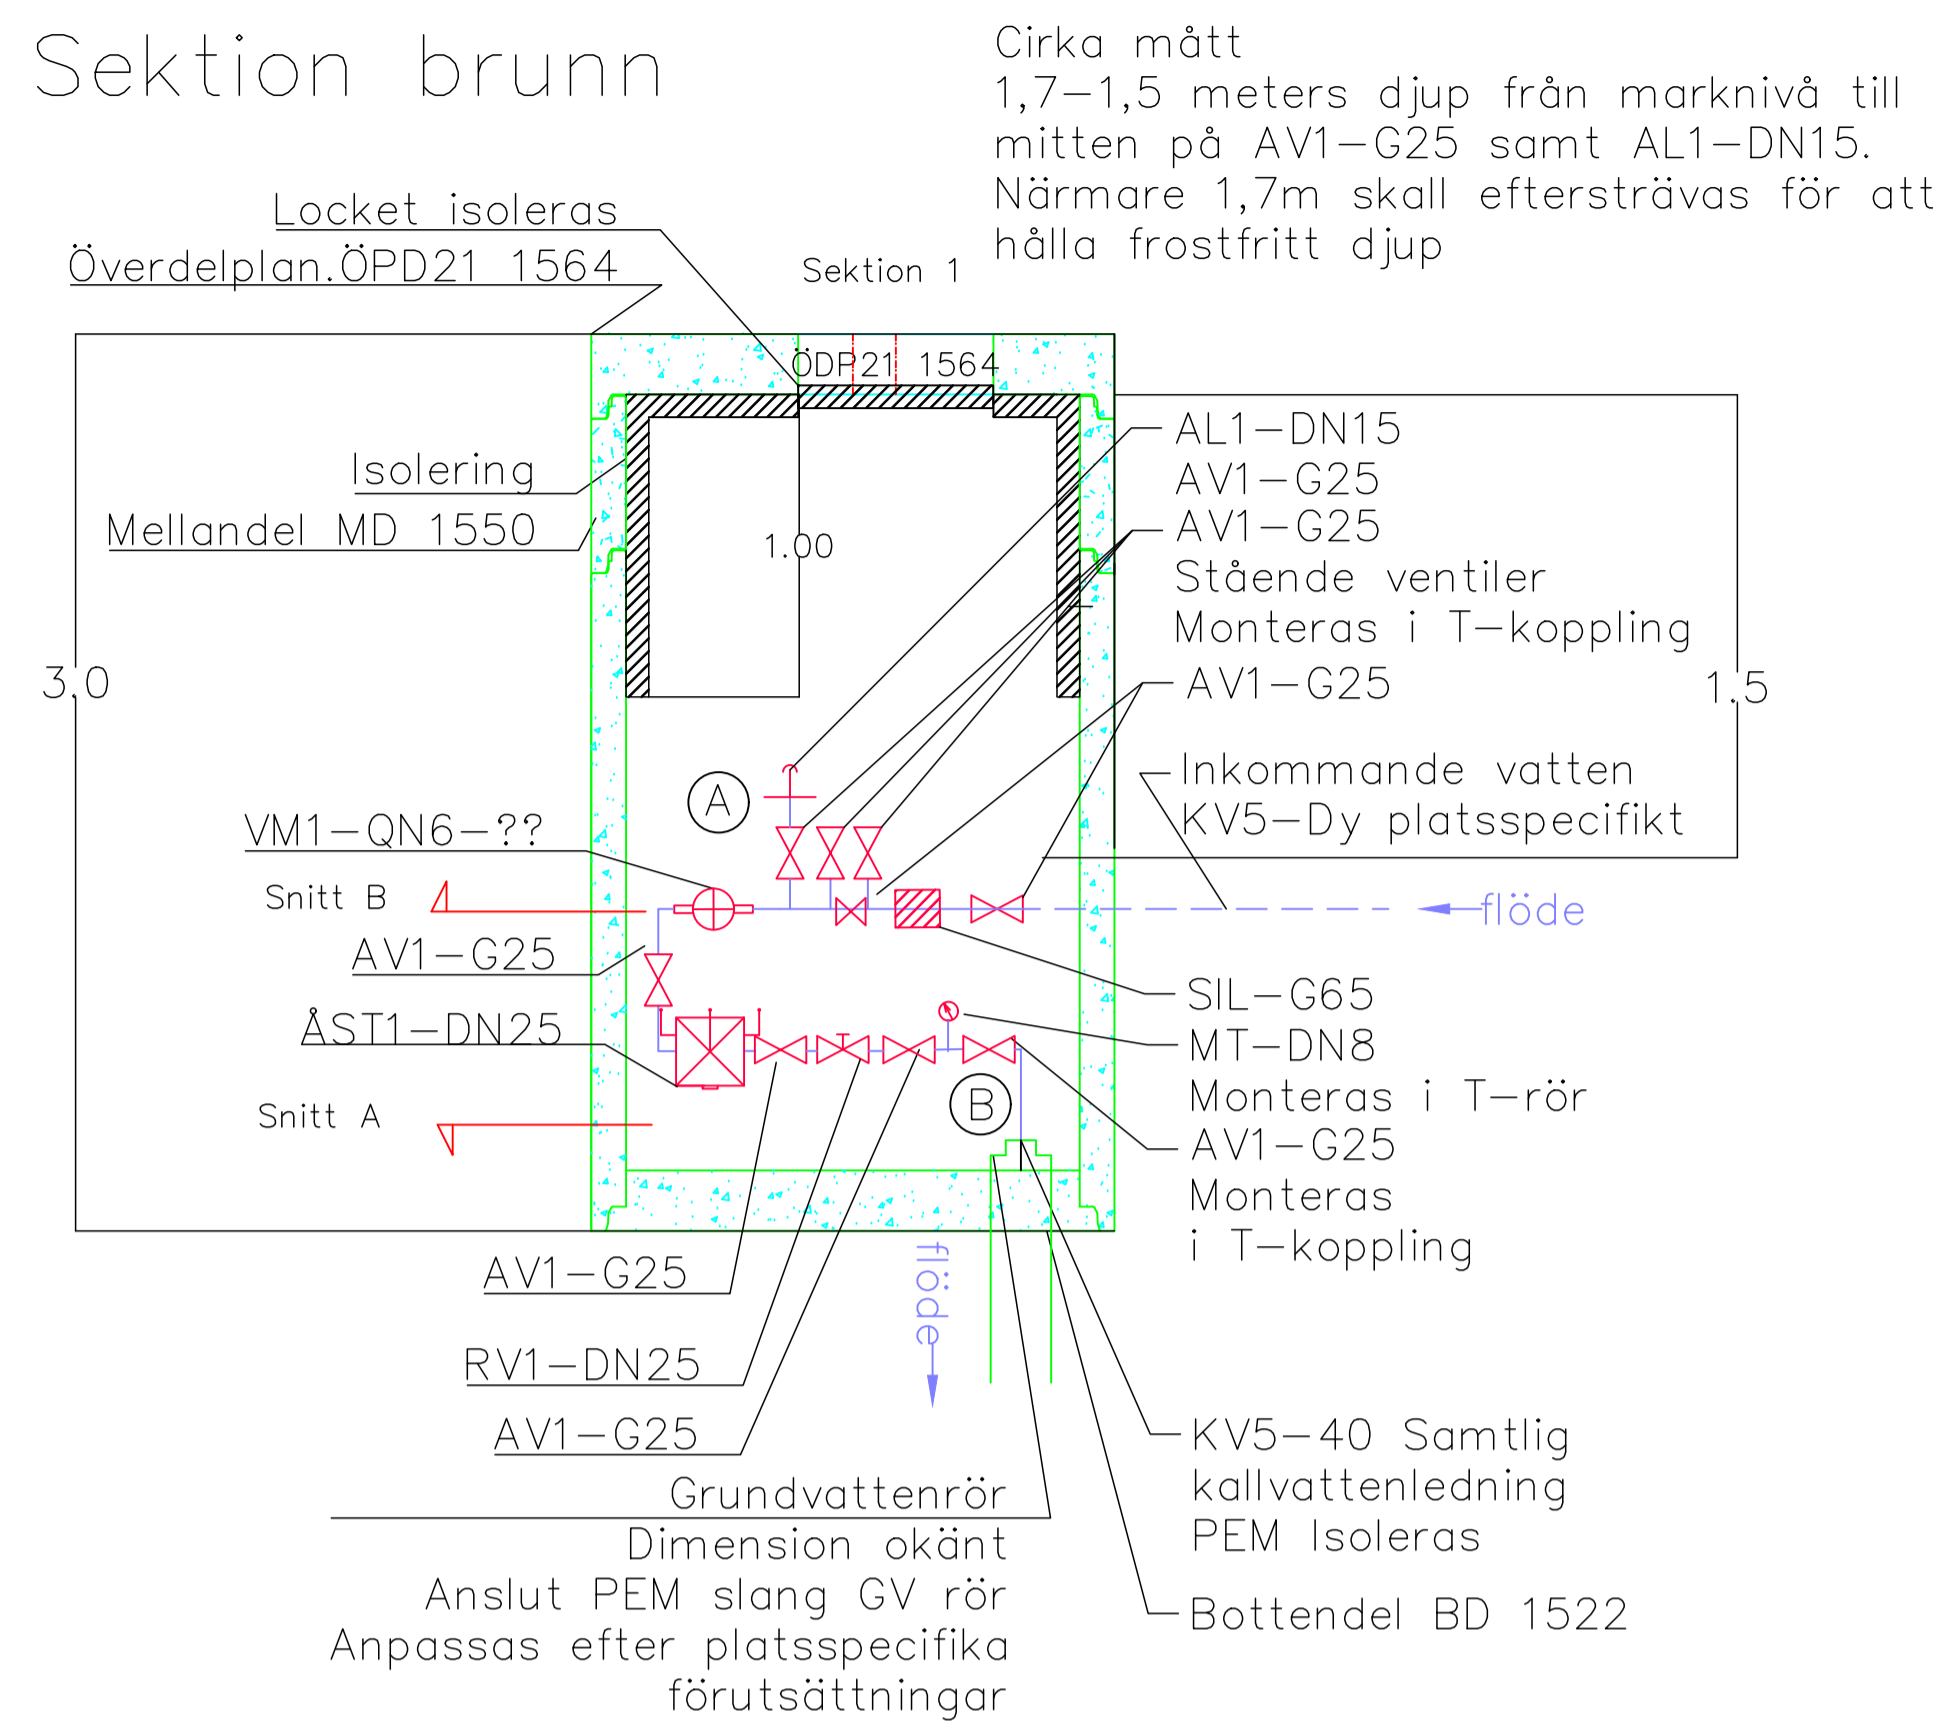 Sektion brunn
Cirka mått
1,7-1,5 meters djup från marknivå till
mitten på AV1-G25 samt AL1-DN15.
Närmare 1,7m skall eftersträvas för att
hålla frostfritt djup
Locket isoleras
Överdelplan.ÖPD21 1564
Sektion 1
ÖDP21 1564
Isolering
Mellandel MD 1550
1.00
3.0
1.5
AL1-DN15
AV1-G25
AV1-G25
Stående ventiler
Monteras i T-koppling
AV1-G25
Inkommande vatten
KV5-Dy platsspecifikt
A
VM1-QN6-??
Snitt B
flöde
AV1-G25
ÅST1-DN25
Snitt A
SIL-G65
MT-DN8
Monteras i T-rör
AV1-G25
Monteras
i T-koppling
B
AV1-G25
flöde
RV1-DN25
AV1-G25
Grundvattenrör
Dimension okänt
Anslut PEM slang GV rör
Anpassas efter platsspecifika
förutsättningar
KV5-40 Samtlig
kallvattenledning
PEM Isoleras
Bottendel BD 1522